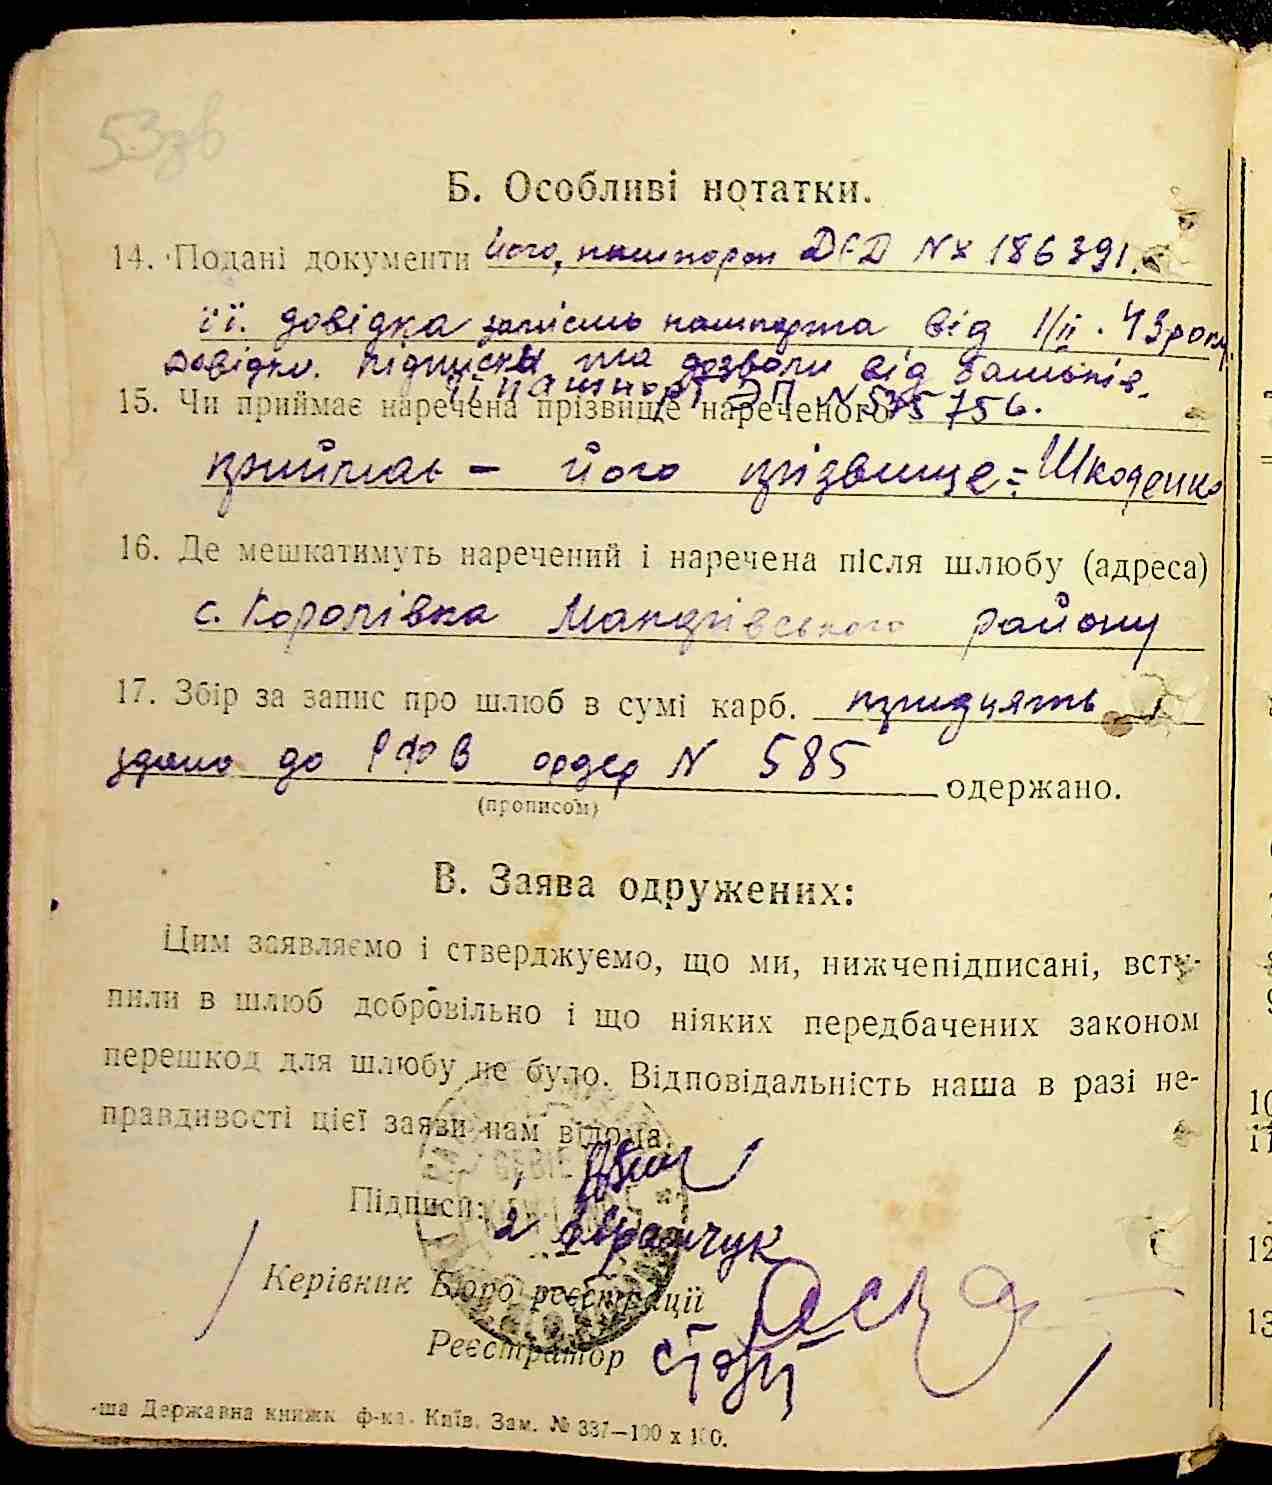 53зв
Б. Особливі нотатки.
14. Подані документи його, пашпорт ДЄД № 186391.
її. довідка замісць пашпорта від 1/ІІ. 43 року.
довідки. підписки та дозволи від батьків.
її пашпорт ЭП № 575756.
15. Чи приймає наречена прізвище нареченого
приймає – його прізвище: Шкоденко
16. Де мешкатимуть наречений і наречена після шлюбу (адреса)
с. Королівка району
17. Збір за запис про шлюб в сумі карб. тридцять
здано до РФВ ордер № 585 одержано.
(прописом)
В. Заява одружених:
Цим заявляємо і стверджуємо, що ми, нижчепідписані, всту-
пили в шлюб добровільно і що ніяких передбачених законом
перешкод для шлюбу не було. Відповідальність наша в разі не-
правдивості цієї заяви нам відома.
Підписи:
Керівник Бюро реєстрації
Реєстратор
-ша Державна книжк. ф-ка. Київ. Зам. № 337—100 х 100.